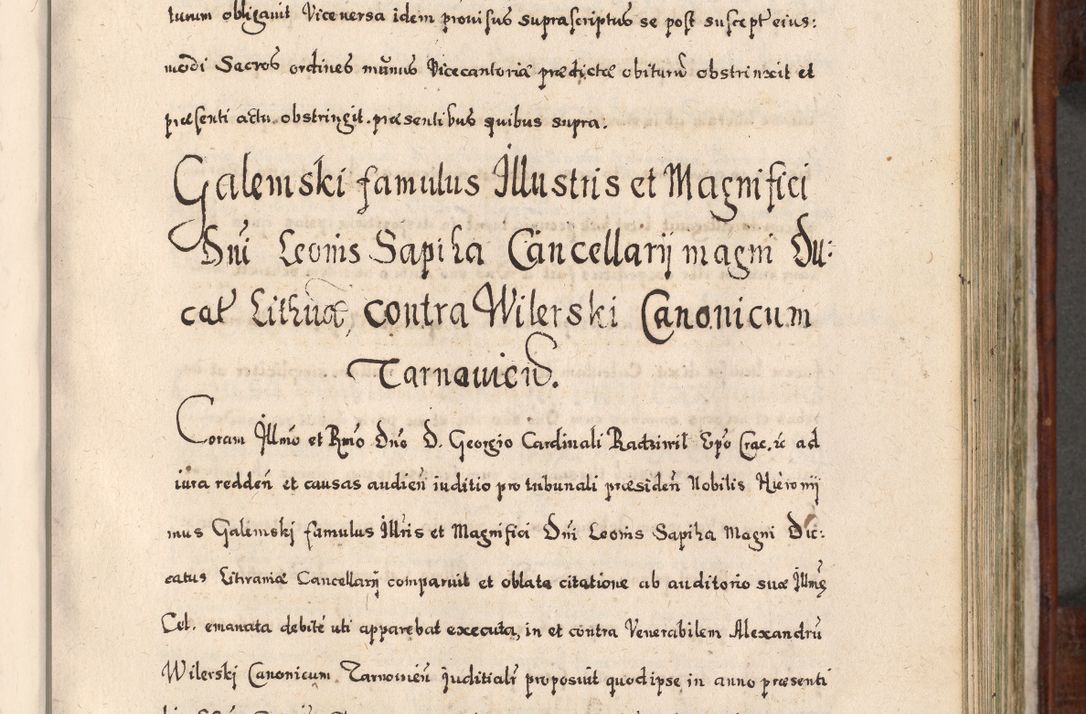 turum obligavit Vice versa idem provisus suprascriptus se post suscept eius:
modi Sacros ordines munus Vicecantoriæ prædictæ obiturū obstrinxit et
præsenti actu obstringit. præsentibus quibus supra.
Galemski famulus Illustris et Magnifici
Dni Leonis Sapiha Cancellarij magni Du:
cat Lithuæ, contra Wilerski Canonicum
Tarnovien.
Coram Illmo et Rmo Dno D. Georgio Cardinali Radziwil Epo Crac. rc ad
iura redden et causas audien iuditio pro tribunali præsiden Nobilis Hieronij
mus Galemskj famulus Illris et Magnifici Dni Leonis Sapiha Magni Duc:
catus Lithvaniæ Cancellarij comparuit et oblata citatione ab auditorio suæ Illmę
Cel. emanata debite uti apparebat executa, in et contra Venerabilem Alexandrū
Wilerskj Canonicum Tarnovien juditialr proposuit quod ipse in anno præsenti